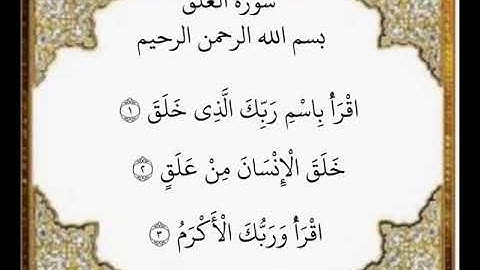 سورة العلق
بسم الله الرحمن الرحيم
اقْرَأْ بِاسْمِ رَبِّكَ الَّذِى خَلَقَ ١
خَلَقَ الْإِنْسَانَ مِنْ عَلَقٍ ٢
اقْرَأْ وَرَبُّكَ الْأَكْرَمُ ٣